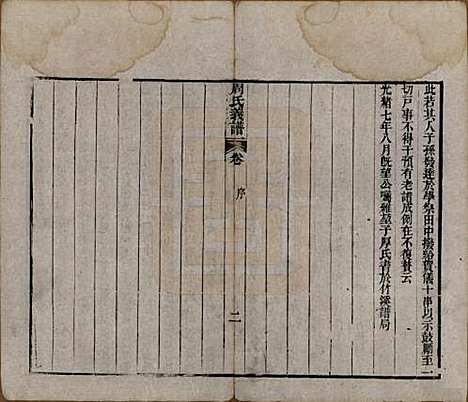 此若其人子孫發達於學祭田中撥給費儀十串以示鼓勵至一
切戸事不得干預有老譜成例在不復贅云
光緒七年八月既望公囑雅堂子厚氏書於竹溪譜局
周氏義譜
卷
序
二